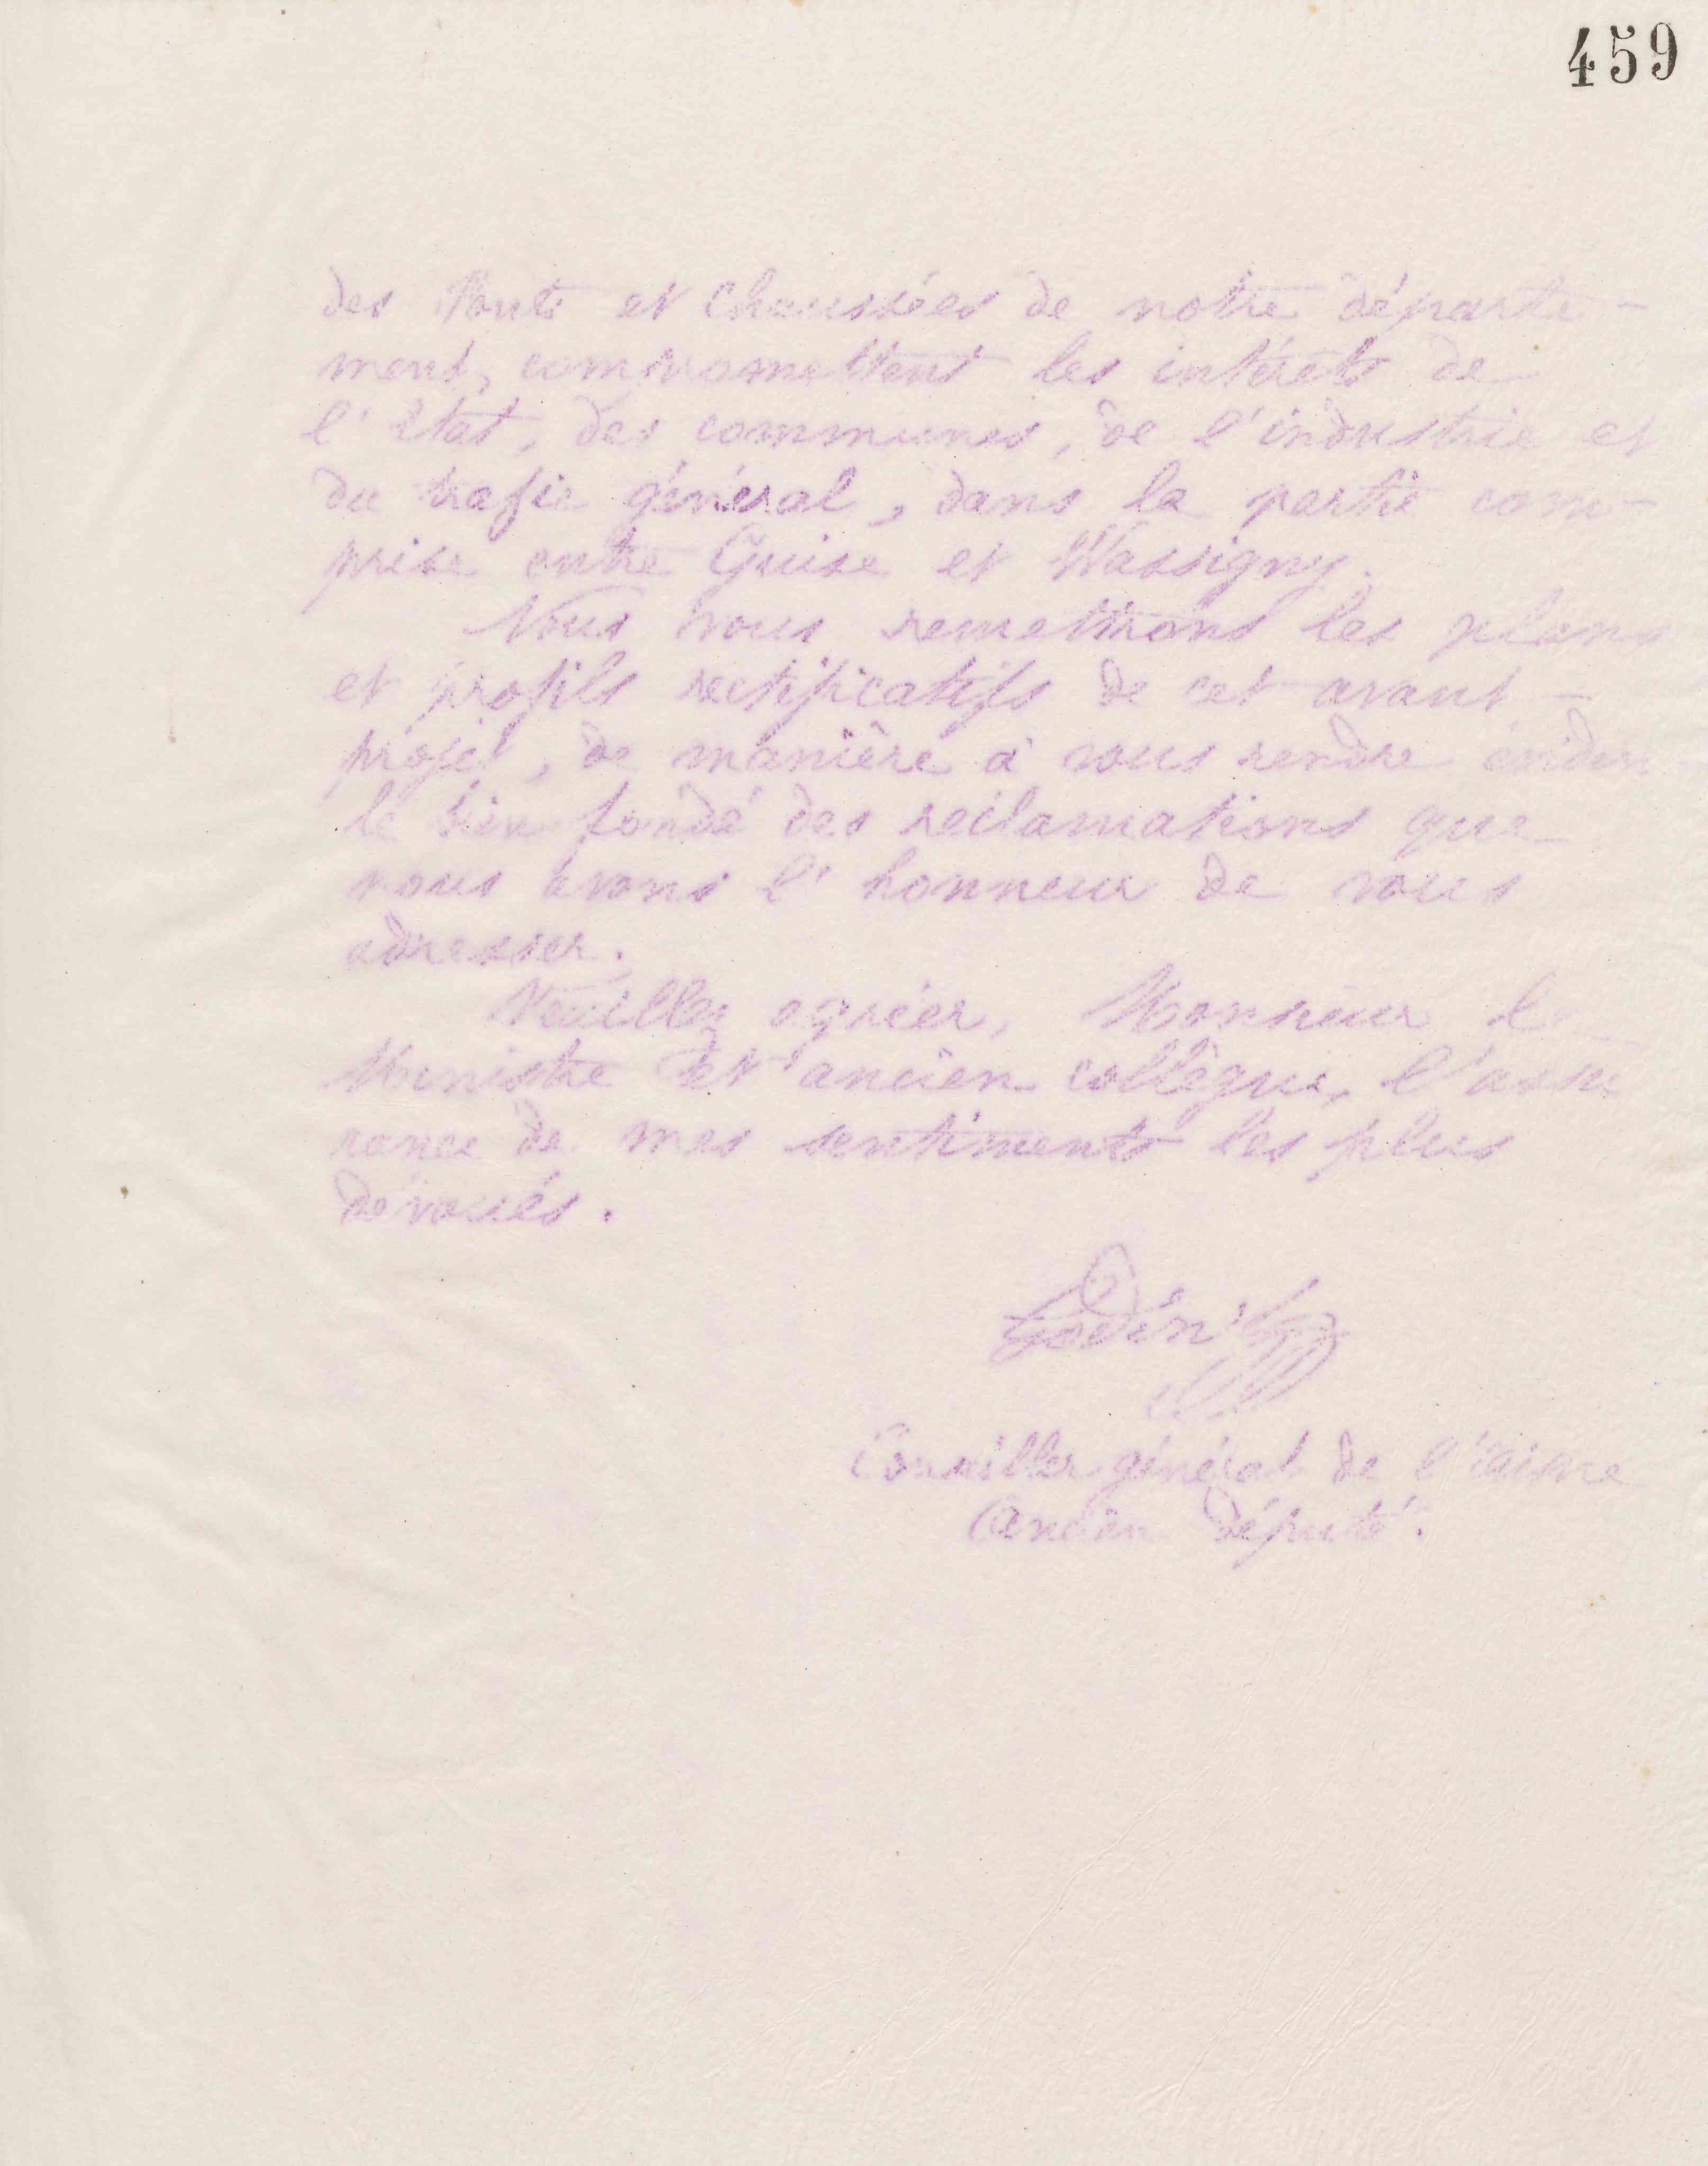 459
des Ponts et Chaussées de notre départe-
ment, compromettent les intérêts de
l'Etat, des communes, de l'industrie et
du trafic général, dans la partie com-
prise entre Guise et Wassigny.
Nous vous remettrons les plans
et profils rectificatifs de cet avant-
projet, de manière à vous rendre évident
le bien fondé des réclamations que
nous avons l'honneur de vous
adresser.
Veuillez agréer, Monsieur le
Ministre et ancien collègue, l'assu
rance de mes sentiments les plus
dévoués.
Godin
Conseiller général de l'Aisne
Ancien député.